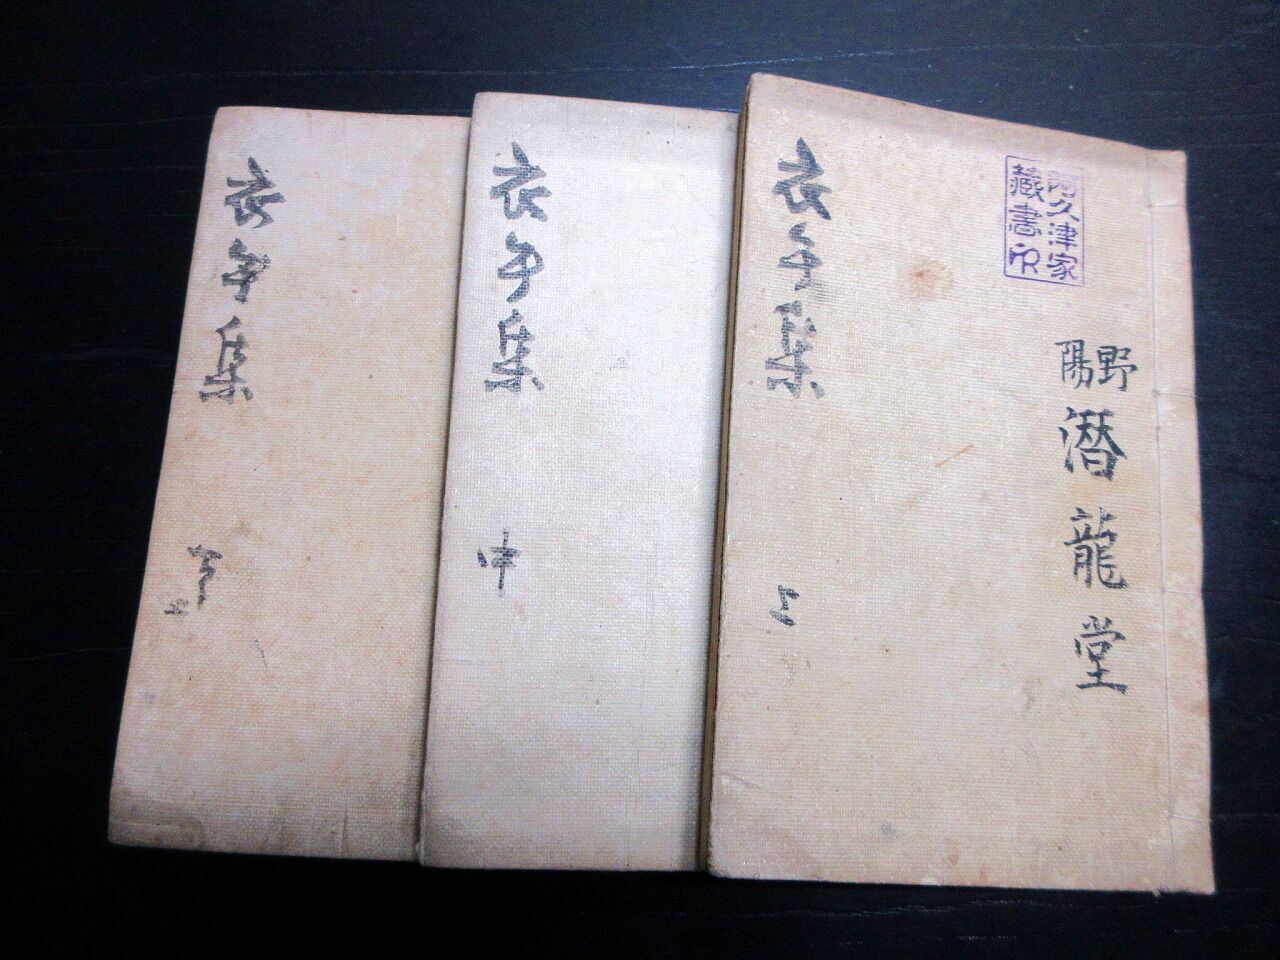 阿久津家
藏書印
野陽
潜龍堂
衣手集
上
衣手集
中
衣手集
下